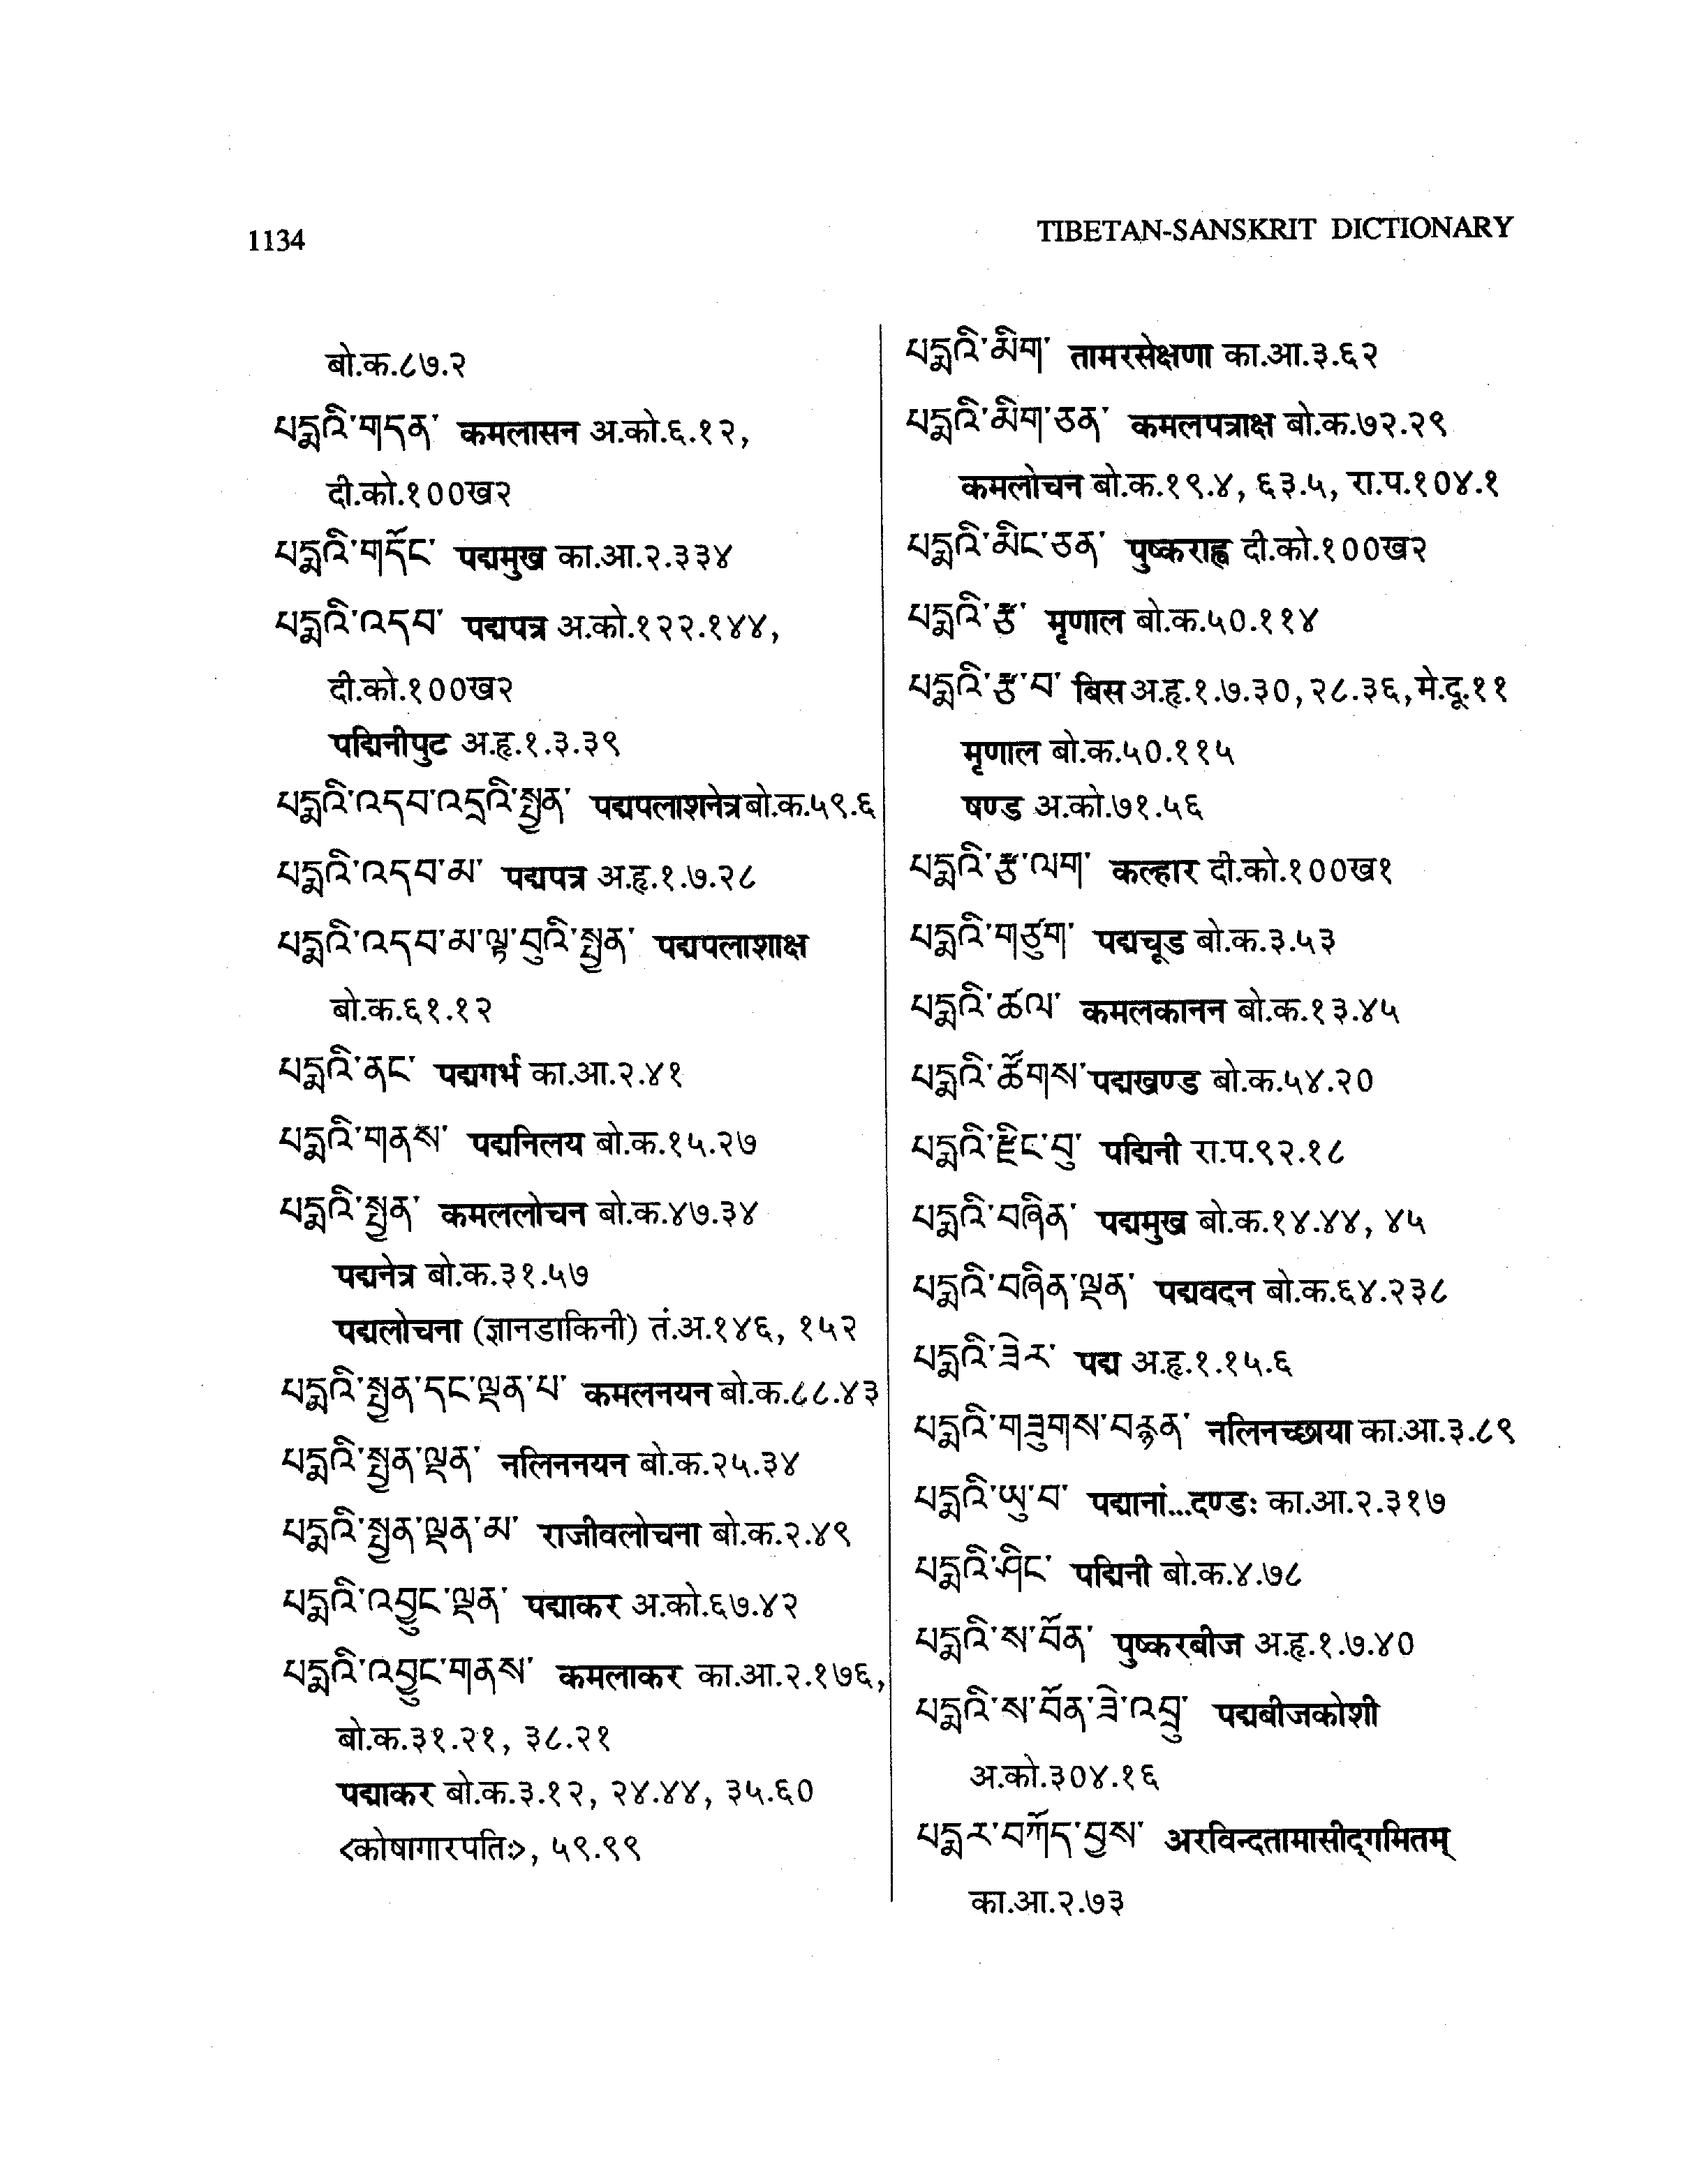 1134
TIBETAN-SANSKRIT DICTIONARY
बो.क.८७.२
པདྨའི་གདན་ कमलासन अ.को.६.१२,
दी.को.१००ख२
པདྨའི་གདོང་ पद्ममुख का.आ.२.३३४
པདྨའི་འདབ་ पद्मपत्र अ.को.१२२.१४४,
दी.को.१००ख२
पद्मिनीपुट अ.हृ.१.३.३९
པདྨའི་འདབ་འདྲའི་སྤྱན་ पद्मपलाशनेत्र बो.क.५९.६
པདྨའི་འདབ་མ་ पद्मपत्र अ.हृ.१.७.२८
པདྨའི་འདབ་མ་ལྟ་བུའི་སྤྱན་ पद्मपलाशाक्ष
बो.क.६१.१२
པདྨའི་ནང་ पद्मगर्भ का.आ.२.४१
པདྨའི་གནས་ पद्मनिलय बो.क.१५.२७
པདྨའི་སྤྱན་ कमललोचन बो.क.४७.३४
पद्मनेत्र बो.क.३१.५७
पद्मलोचना (ज्ञानडाकिनी) तं.अ.१४६, १५२
པདྨའི་སྤྱན་དང་ལྡན་པ་ कमलनयन बो.क.८८.४३
པདྨའི་སྤྱན་ལྡན་ नलिननयन बो.क.२५.३४
པདྨའི་སྤྱན་ལྡན་མ་ राजीवलोचना बो.क.२.४९
པདྨའི་འབྱུང་ལྡན་ पद्माकर अ.को.६७.४२
པདྨའི་འབྱུང་གནས་ कमलाकर का.आ.२.१७६,
बो.क.३१.२१, ३८.२१
पद्माकर बो.क.३.१२, २४.४४, ३५.६०
<कोषागारपतिः>, ५९.९९
པདྨའི་མིག་ तामरसेक्षणा का.आ.३.६२
པདྨའི་མིག་ཅན་ कमलपत्राक्ष बो.क.७२.२९
कमलोचन बो.क.१९.४, ६३.५, रा.प.१०४.१
པདྨའི་མིང་ཅན་ पुष्कराह्व दी.को.१००ख२
པདྨའི་རྩ་ मृणाल बो.क.५०.११४
པདྨའི་རྩ་བ་ बिस अ.हृ.१.७.३०, २८.३६, मे.दू.११
मृणाल बो.क.५०.११५
षण्ड अ.को.७१.५६
པདྨའི་རྩ་ལག་ कल्हार दी.को.१००ख१
པདྨའི་གཙུག་ पद्मचूड बो.क.३.५३
པདྨའི་ཚལ་ कमलकानन बो.क.१३.४५
པདྨའི་ཚོགས་ पद्मखण्ड बो.क.५४.२०
པདྨའི་རྫིང་བུ་ पद्मिनी रा.प.९२.१८
པདྨའི་བཞིན་ पद्ममुख बो.क.१४.४४, ४५
པདྨའི་བཞིན་ལྡན་ पद्मवदन बो.क.६४.२३८
པདྨའི་ཟེར་ पद्म अ.हृ.१.१५.६
པདྨའི་གཟུགས་བརྙན་ नलिनच्छाया का.आ.३.८९
པདྨའི་ཡུ་བ་ पद्मानां...दण्डः का.आ.२.३१७
པདྨའི་ཤིང་ पद्मिनी बो.क.४.७८
པདྨའི་ས་བོན་ पुष्करबीज अ.हृ.१.७.४०
པདྨའི་ས་བོན་ཟེ་འབྲུ་ पद्मबीजकोशी
अ.को.३०४.१६
པདྨར་བཀོད་བྱས་ अरविन्दतामासीद्गमितम्
का.आ.२.७३